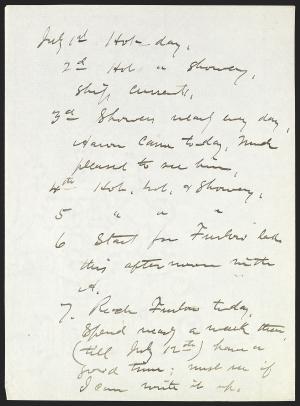 July 1st Hot day,
2d Hot " Showery,
Ship currents,
3d Showers nearly every day,
Aaron came today, Much
pleased to see him,
4th Hot, hot, & Showery,
5 " " "
6 Start for Furlow lake
this afternoon with
A.
7. Reach Furlow today.
Spend nearly a week there
(till July 12th) have a
good time; must see if
I can write it up.